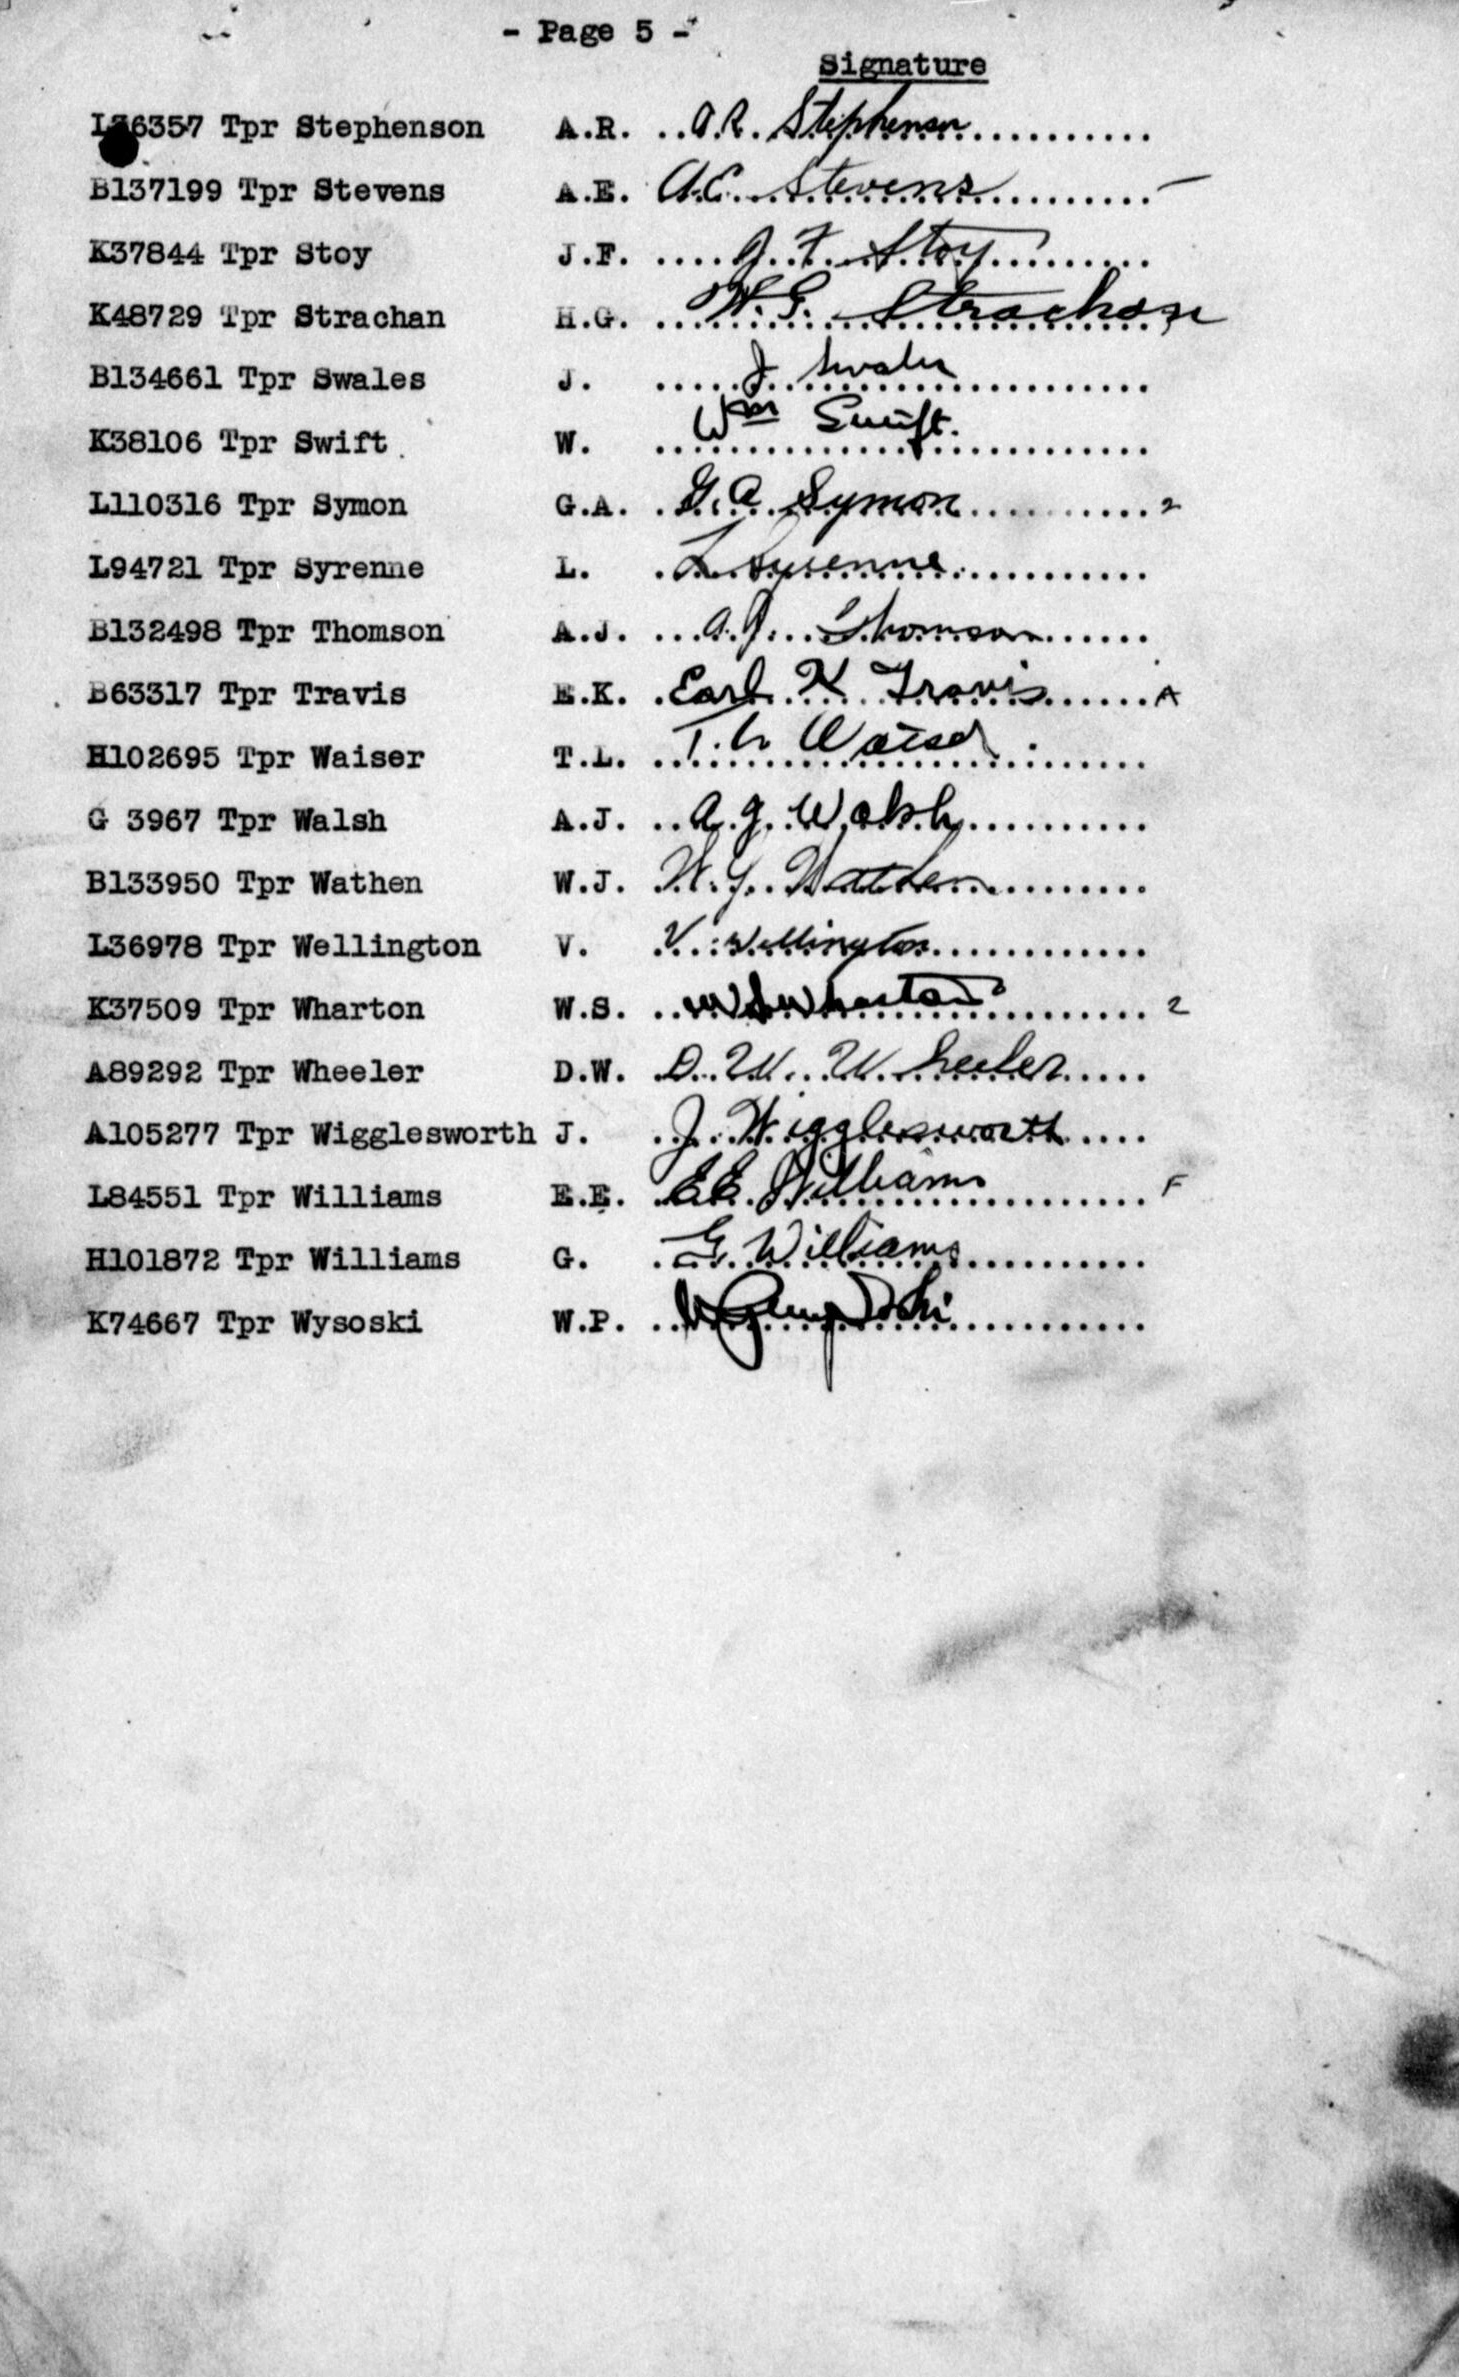 - Page 5 -
Signature
L36357 Tpr Stephenson A.R. ..A.R. Stephenson...........
B137199 Tpr Stevens A.E. A.E. Stevens.......... –
K37844 Tpr Stoy J.F. ....J. F. Stoy.........
K48729 Tpr Strachan H.G. ....H. G. Strachan
B134661 Tpr Swales J. .....J Swales...........
K38106 Tpr Swift W. Wm Swift.
L110316 Tpr Symon G.A. .G. A. Symon........... 2
L94721 Tpr Syrenne L. .L Syrenne...........
B132498 Tpr Thomson A.J. ...A.J. Thomson......
B63317 Tpr Travis E.K. .Earl K Travis...... A
H102695 Tpr Waiser T.L. T. L Waiser
G 3967 Tpr Walsh A.J. ..A. J. Walsh..........
B133950 Tpr Wathen W.J. W. J. Wathen.........
L36978 Tpr Wellington V. V. Wellington............
K37509 Tpr Wharton W.S. ..W S Wharton......... 2
A89292 Tpr Wheeler D.W. .D. W. Wheeler.....
A105277 Tpr Wigglesworth J. .J. Wigglesworth....
L84551 Tpr Williams E.E. .E E. Williams......... F
H101872 Tpr Williams G. .G. Williams..........
K74667 Tpr Wysoski W.P. ..